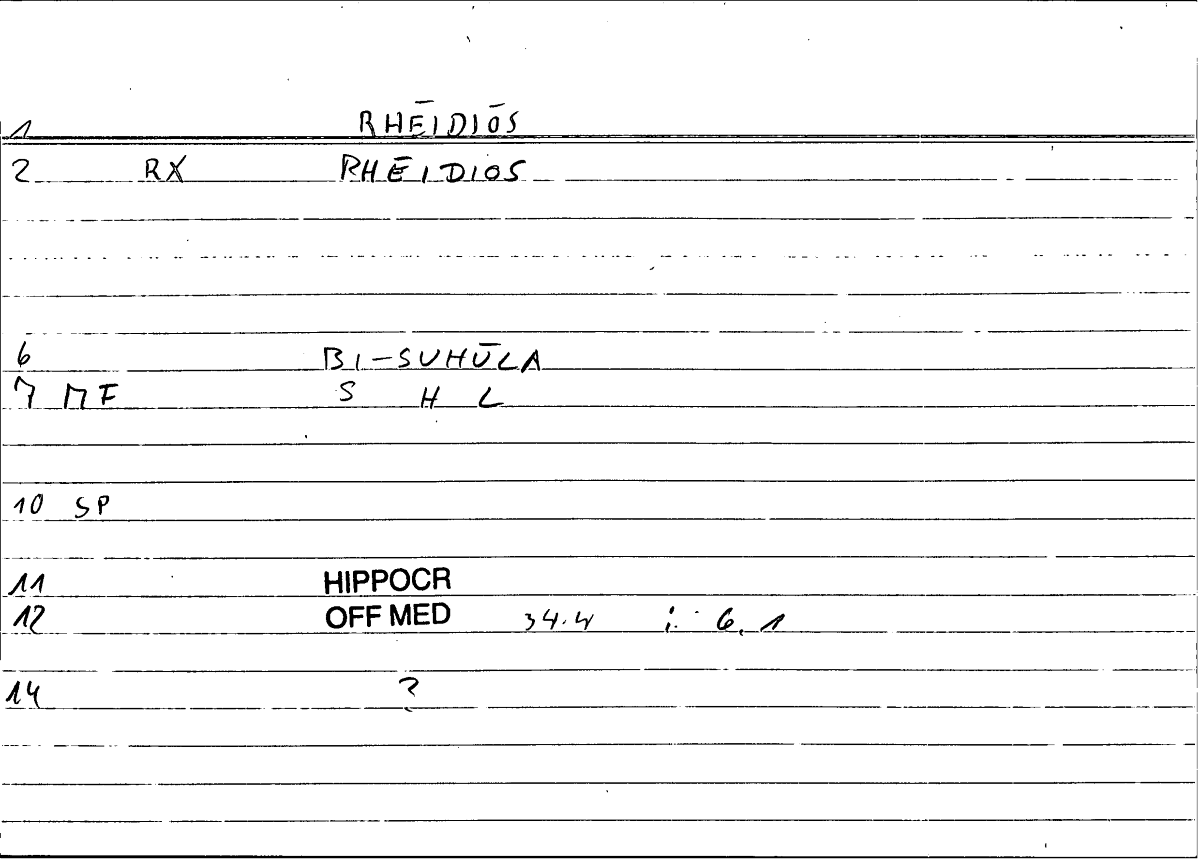 1 RHĒIDIŌS
2 RX RHĒIDIOS
6 BI-SUHŪLA
7 MF S H L
10 SP
11 HIPPOCR
12 OFF MED 34.4 i. 6,1
14 ?